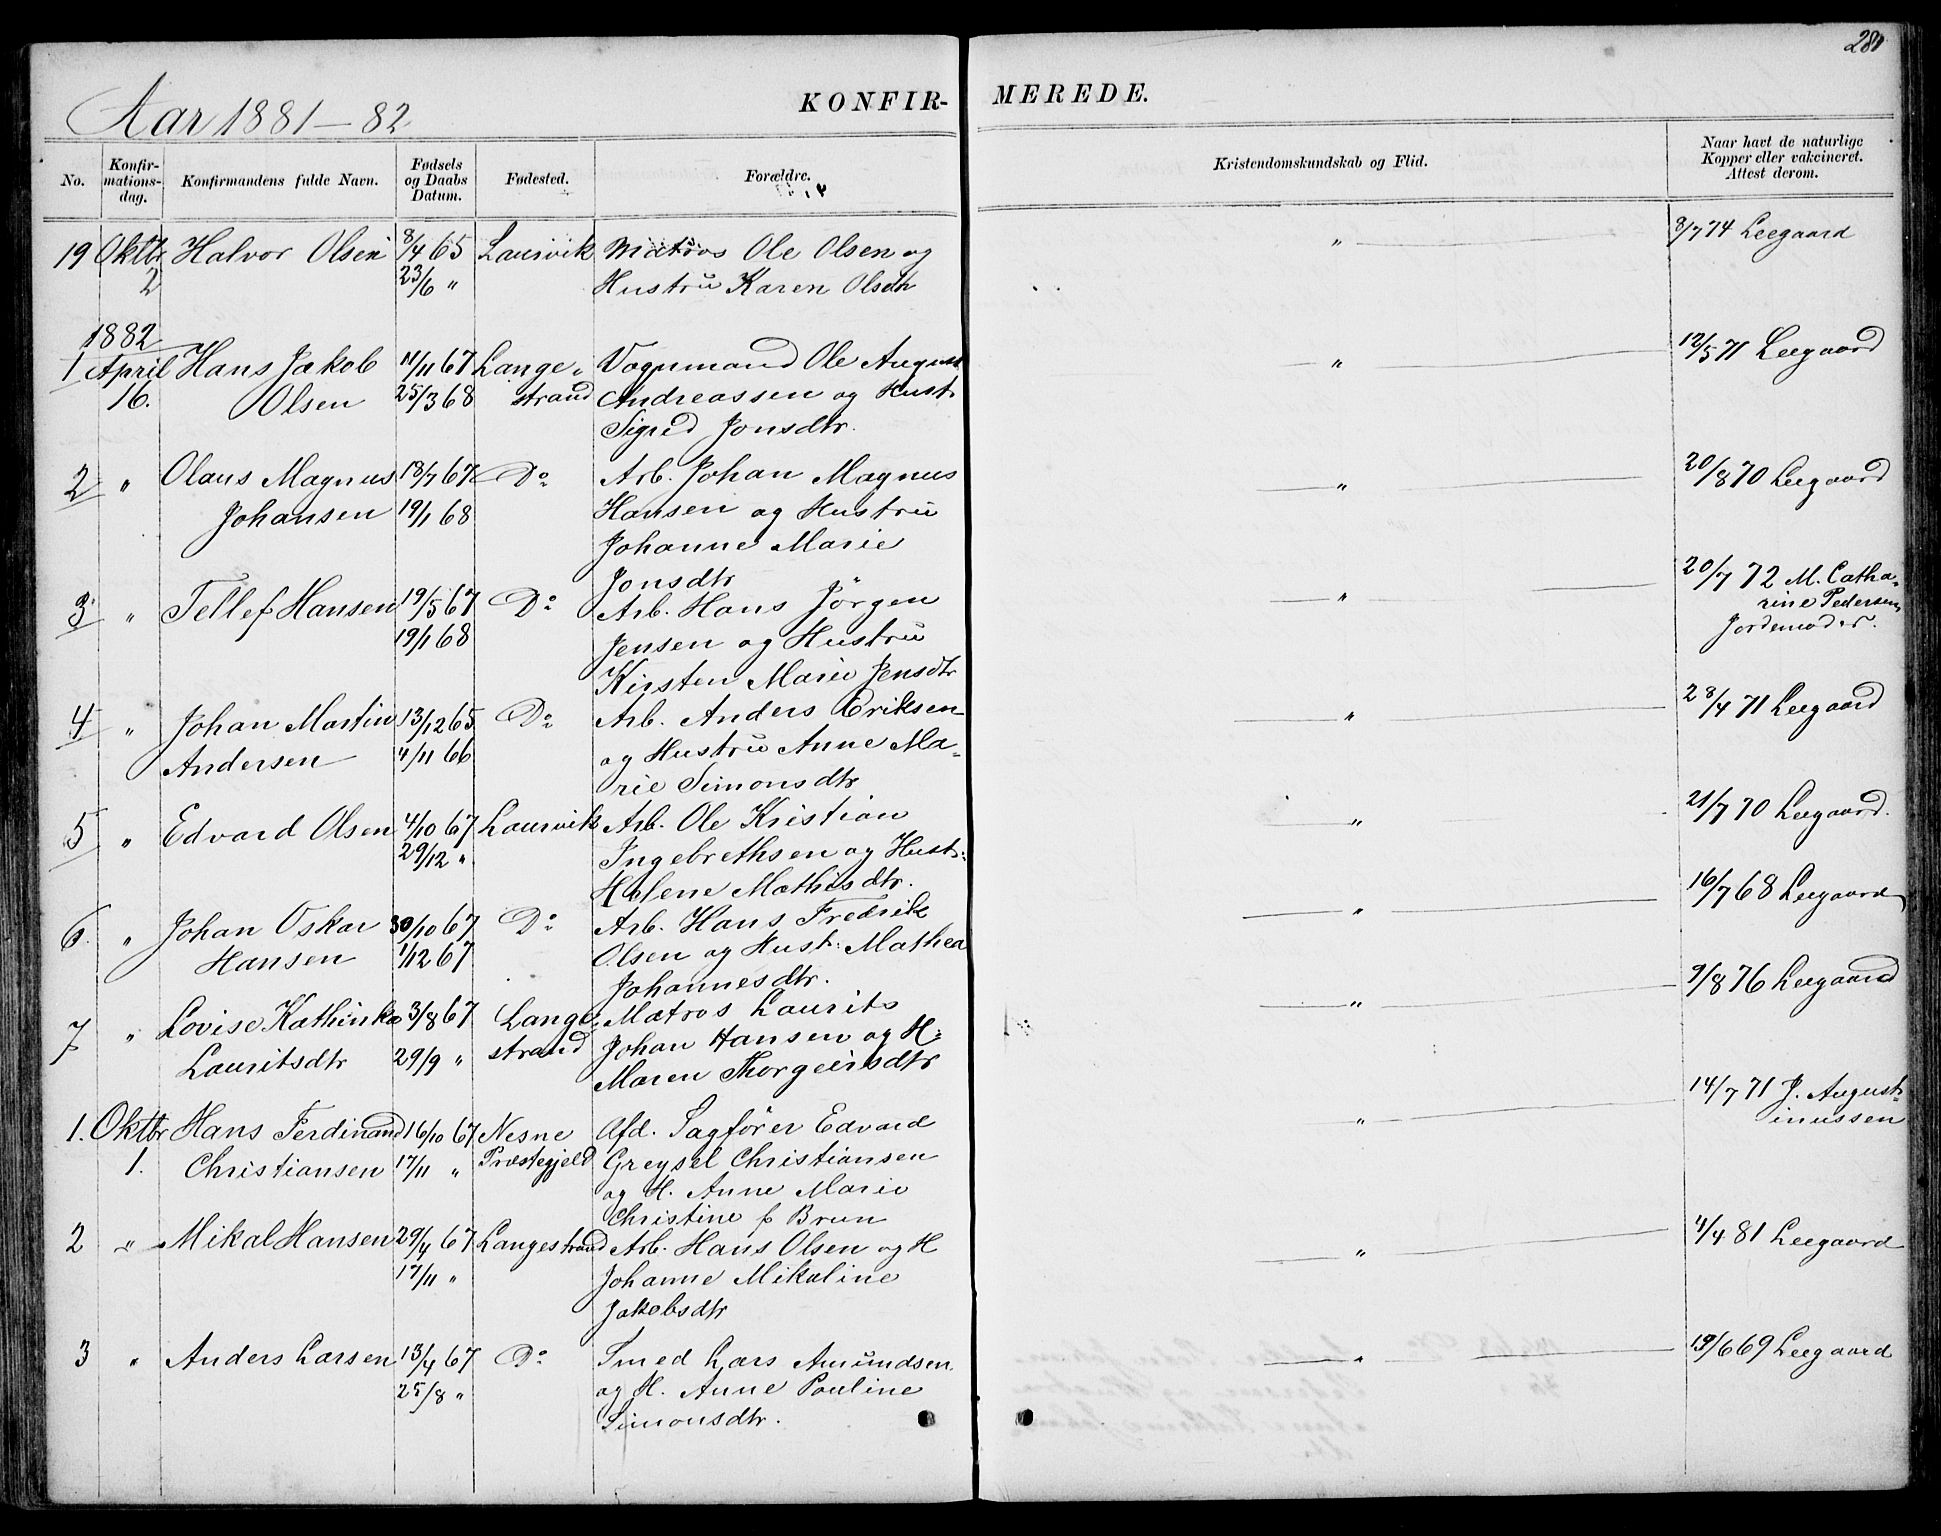 281
Aar 1881–82
KONFIR-
MEREDE.
No.
Konfir-
mations-
dag.
Konfirmandens fulde Navn.
Fødsels
og Daabs
Datum.
Fødested.
Forældre.
Kristendomskundskab og Flid.
Naar havt de naturlige
Kopper eller vakcineret.
Attest derom.
19 Oktbr Halvor Olsen 8/4 65 Laurvik Matros Ole Olsen og " 8/7 74 Leegaard
2 23/6 " Hustru Karen Olsen
1882
1 April Hans Jakob 11/11 67 Lange- Vognmand Ole August " 12/5 71 Leegaard
16. Olsen 25/3 68 strand Andreassen og Hust.
Sigrid Jonsdtr.
2 " Olaus Magnus 18/7 67 Do Arb. Johan Magnus " 20/8 70 Leegaard
Johansen 19/1 68 Hansen og Hustru
Johanne Marie
Jonsdtr
3 " Tellef Hansen 19/5 67 Do Arb. Hans Jörgen " 20/7 72 M. Catha-
19/1 68 Jensen og Hustru rine Pedersen,
Kirsten Marie Jensdtr Jordemoder.
4 " Johan Martin 13/12 65 Do Arb. Anders Eriksen " 28/4 71 Leegaard
Andersen 4/11 66 og Hustru Anne Ma-
rie Simonsdtr
5 " Edvard Olsen 4/10 67 Laurvik Arb. Ole Kristian " 21/7 70 Leegaard.
29/12 " Ingebrethsen og Hust:
Helene Mathisdtr.
6. " Johan Oskar 30/10 67 Do Arb. Hans Fredrik " 16/7 68 Leegaard
Hansen 1/12 67 Olsen og Hust: Mathea
Johannesdtr.
7 " Lovise Kathinka 3/8 67 Lange- Matros Laurits " 9/8 76 Leegaard
Lauritsdtr 29/9 " strand Johan Hansen og H:
Maren Thorgeirsdtr
1. Oktbr Hans Ferdinand 16/10 67 Nesne Afd. Sagförer Edvard " 14/7 71 J. August-
1. Christiansen 17/11 " Præstegjeld Greysel Christiansen inussen
og H. Anne Marie
Christine f Brun
2 " Mikal Hansen 29/4 67 Langestrand Arb. Hans Olsen og H " 4/4 81 Leegaard
17/11 " Johanne Mikaline
Jakobsdtr
3 " Anders Larsen 13/4 67 Do Smed Lars Amundsen " 19/6 69 Leegaard
25/8 " og H. Anne Pauline
Simonsdtr.